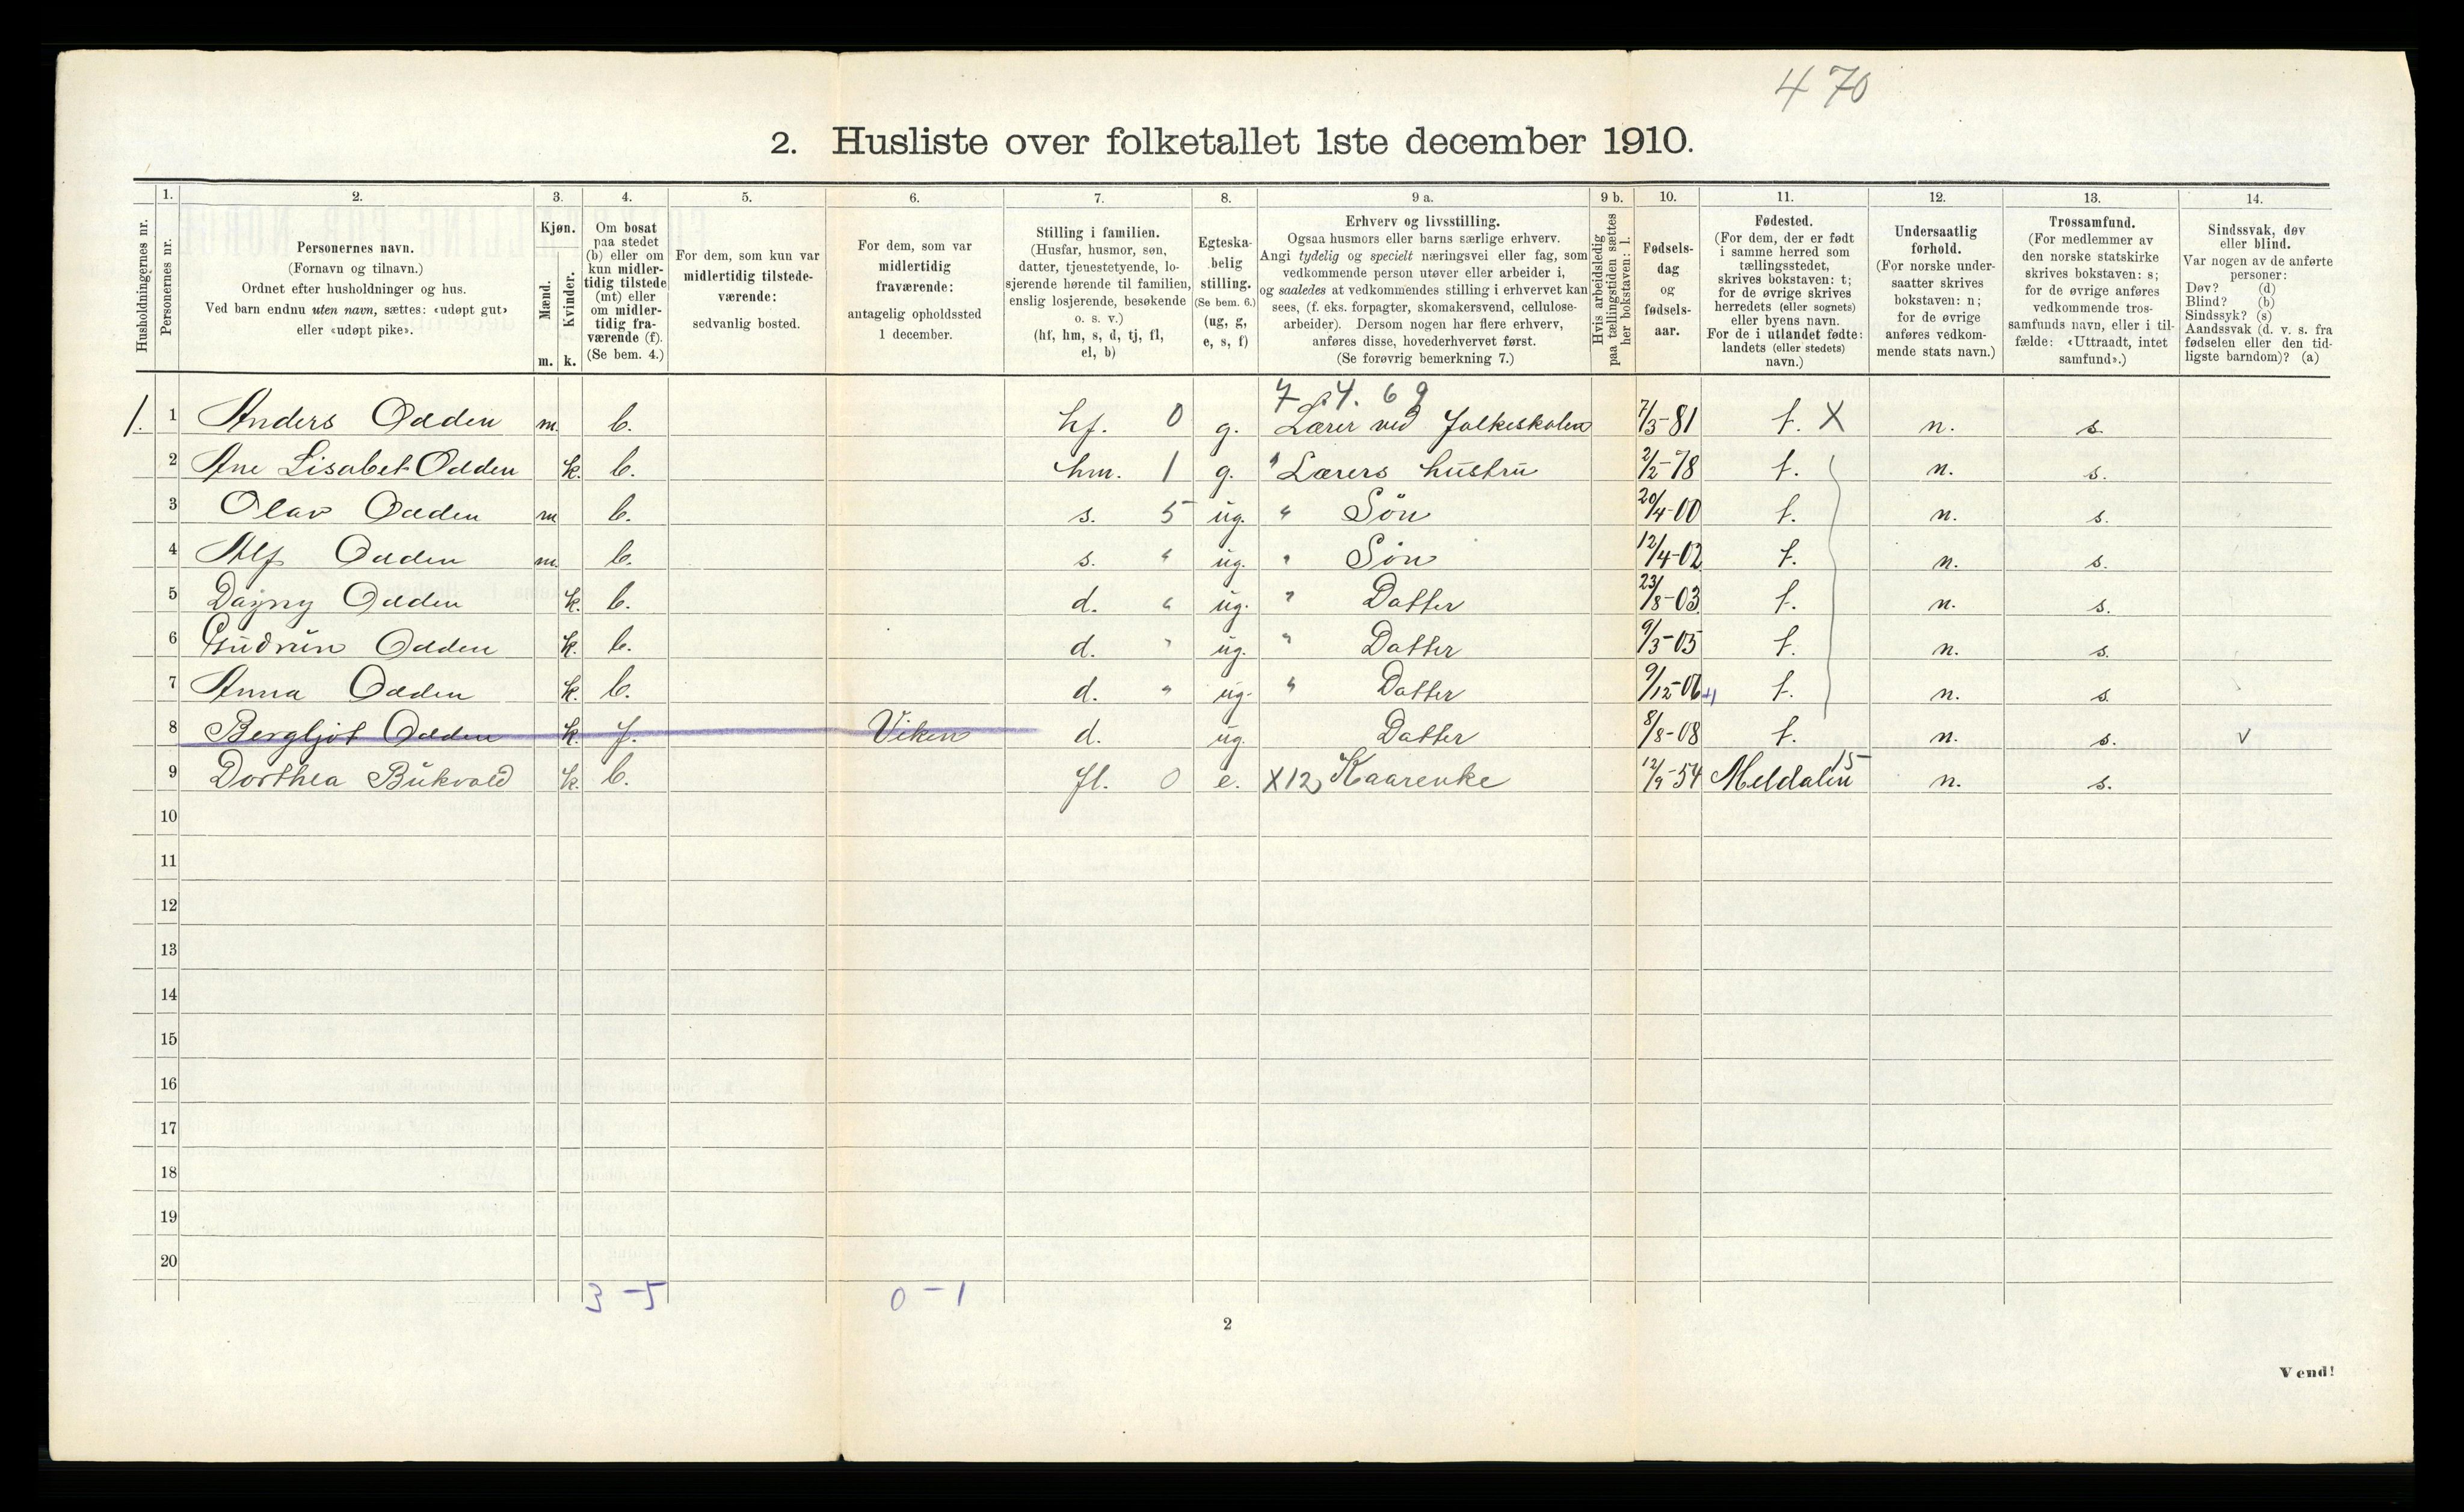 470
2. Husliste over folketallet 1ste december 1910.
Husholdningernes nr.
1. Personernes nr.
2. Personernes navn.
(Fornavn og tilnavn.)
Ordnet efter husholdninger og hus.
Ved barn endnu uten navn, sættes: «udøpt gut»
eller «udøpt pike».
3. Kjøn.
Mænd. m.
Kvinder. k.
4. Om bosat
paa stedet
(b) eller om
kun midler-
tidig tilstede
(mt) eller
om midler-
tidig fra-
værende (f).
(Se bem. 4.)
5. For dem, som kun var
midlertidig tilstede-
værende:
sedvanlig bosted.
6. For dem, som var
midlertidig
fraværende:
antagelig opholdssted
1 december.
7. Stilling i familien.
(Husfar, husmor, søn,
datter, tjenestetyende, lo-
sjerende hørende til familien,
enslig losjerende, besøkende
o. s. v.)
(hf, hm, s, d, tj, fl,
el, b)
8. Egteska-
belig
stilling.
(Se bem. 6.)
(ug, g,
e, s, f)
9 a. Erhverv og livsstilling.
Ogsaa husmors eller barns særlige erhverv.
Angi tydelig og specielt næringsvei eller fag, som
vedkommende person utøver eller arbeider i,
og saaledes at vedkommendes stilling i erhvervet kan
sees, (f. eks. forpagter, skomakersvend, cellulose-
arbeider). Dersom nogen har flere erhverv,
anføres disse, hovederhvervet først.
(Se forøvrig bemerkning 7.)
9 b. Hvis arbeidsledig
paa tællingstiden sættes
her bokstaven: l.
10. Fødsels-
dag
og
fødsels-
aar.
11. Fødested.
(For dem, der er født
i samme herred som
tællingsstedet,
skrives bokstaven: t;
for de øvrige skrives
herredets (eller sognets)
eller byens navn.
For de i utlandet fødte:
landets (eller stedets)
navn.)
12. Undersaatlig
forhold.
(For norske under-
saatter skrives
bokstaven: n;
for de øvrige
anføres vedkom-
mende stats navn.)
13. Trossamfund.
(For medlemmer av
den norske statskirke
skrives bokstaven: s;
for de øvrige anføres
vedkommende tros-
samfunds navn, eller i til-
fælde: «Uttraadt, intet
samfund».)
14. Sindssvak, døv
eller blind.
Var nogen av de anførte
personer:
Døv? (d)
Blind? (b)
Sindssyk? (s)
Aandssvak (d. v. s. fra
fødselen eller den tid-
ligste barndom)? (a)
1. 1 Anders Odden m. b. hf. 0 g. Lærer ved Folkeskolen 7/3-81 t. X n. s.
2 Ane Lisabet Odden k. b. hm. 1 g. " Lærers hustru 2/2-78 t. n. s.
3 Olav Odden m b. s. 5 ug. " Søn 20/4-00 t. n. s.
4 Alf Odden m. b. s. " ug. " Søn 12/4-02 t. n. s.
5 Dagny Odden k. b. d. " ug. " Datter 23/8-03 t. n. s.
6 Gudrun Odden k. b. d. " ug. " Datter 9/3-05 t. n. s.
7 Anna Odden k. b. d. " ug. " Datter 9/12-06 t. n. s.
8 Bergljot Odden k. f. Viken d. ug. Datter 8/8-08 t. n. s. v
9 Dorthea Bukvald k. b. fl. 0 e. X12, Kaarenke 12/9-54 Meldalen 15 n. s.
10
11
12
13
14
15
16
17
18
19
20
3-5 0-1
2
Vend!